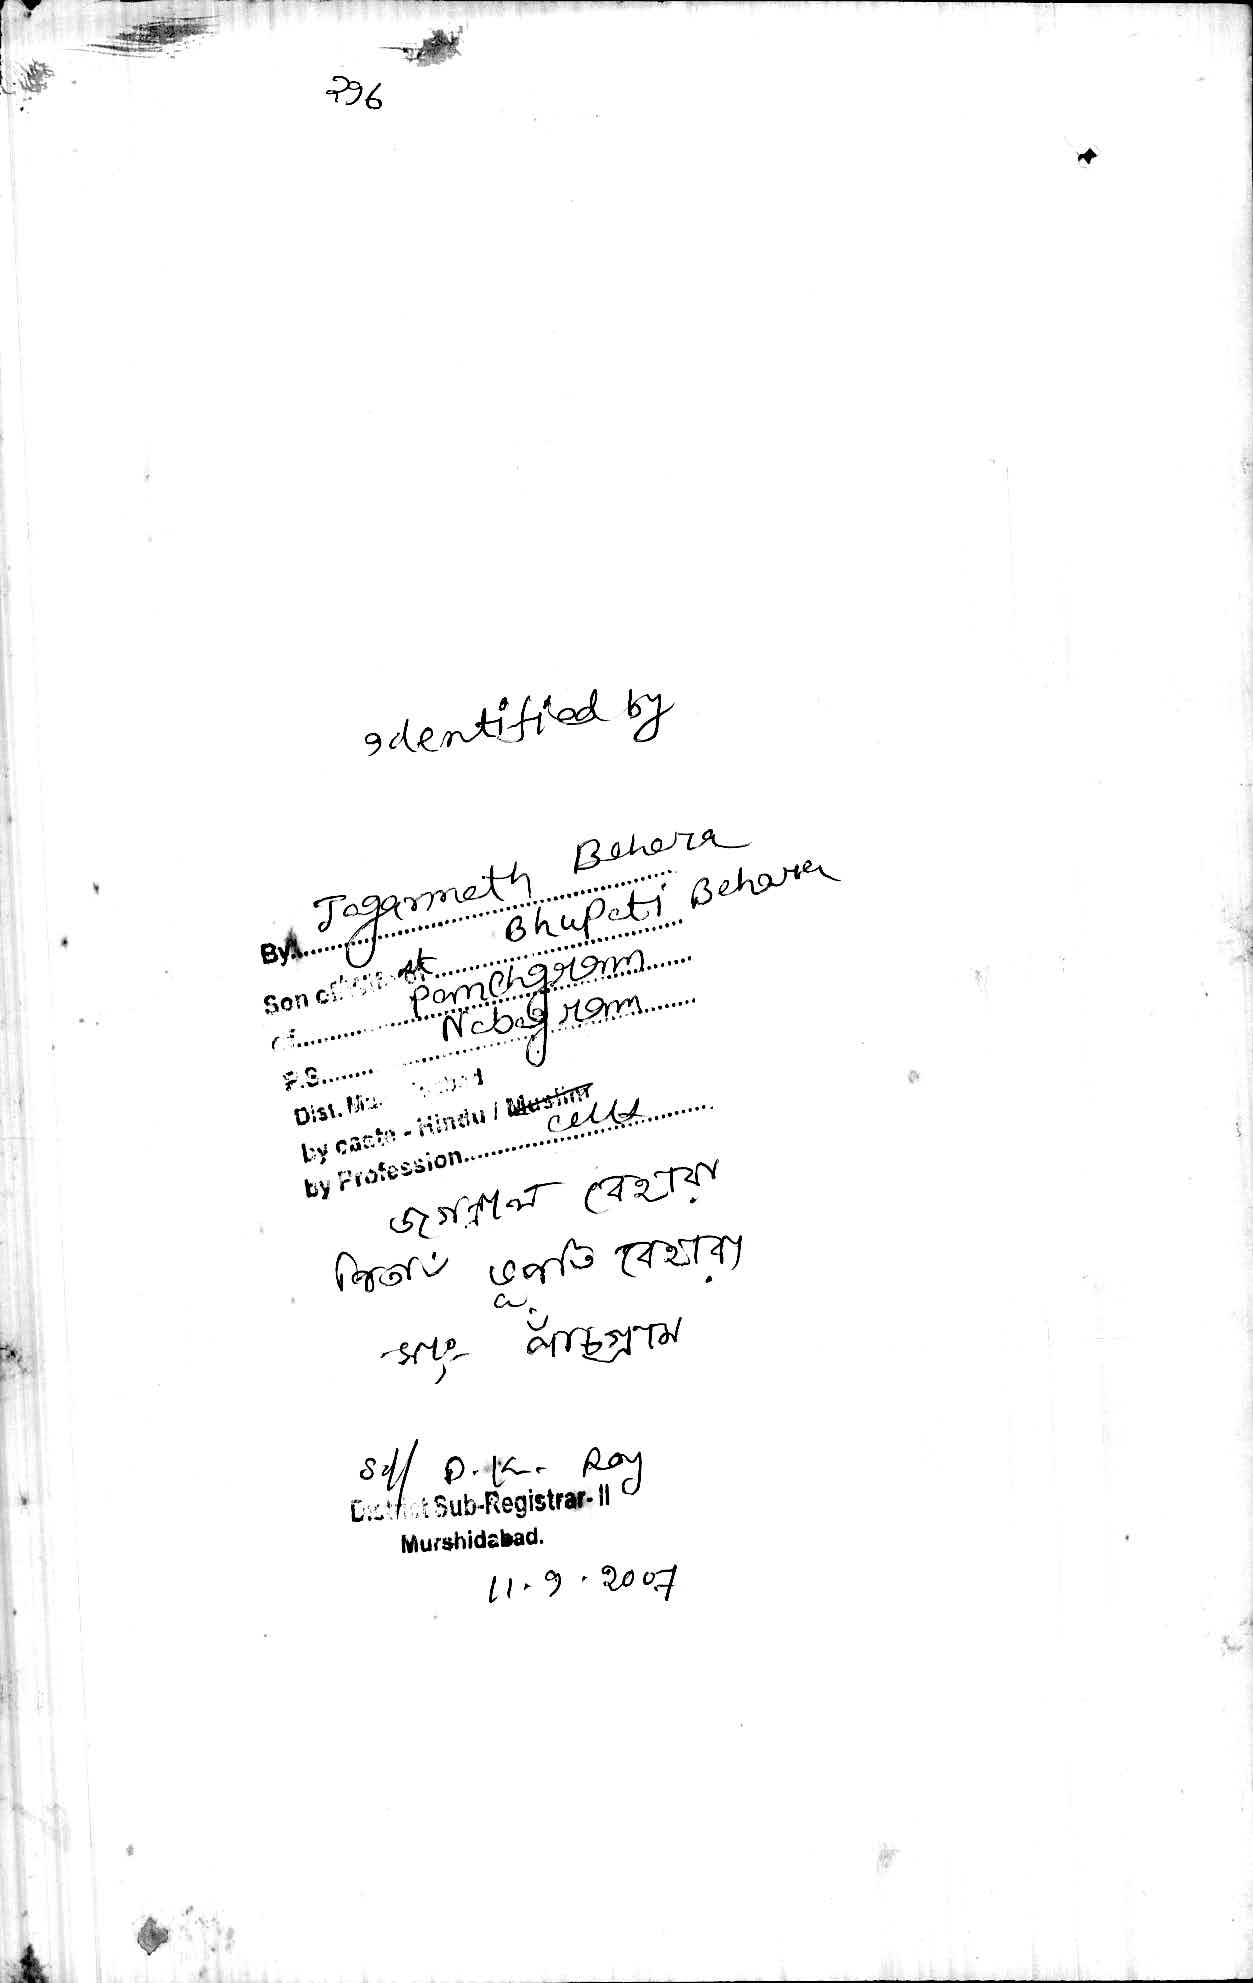 296
Identified by
By Jagannath Behera
Son of Bhupati Behara
of Panchgram
P.S. Nabagram
Dist.
by caste - Hindu / Muslim
by Profession
জগন্নাথ বেহারা
পিতা ভূপতি বেহারা
সাং পাঁচগ্রাম
Sd/ D. K. Roy
District Sub-Registrar- II
Murshidabad.
11.9.2007